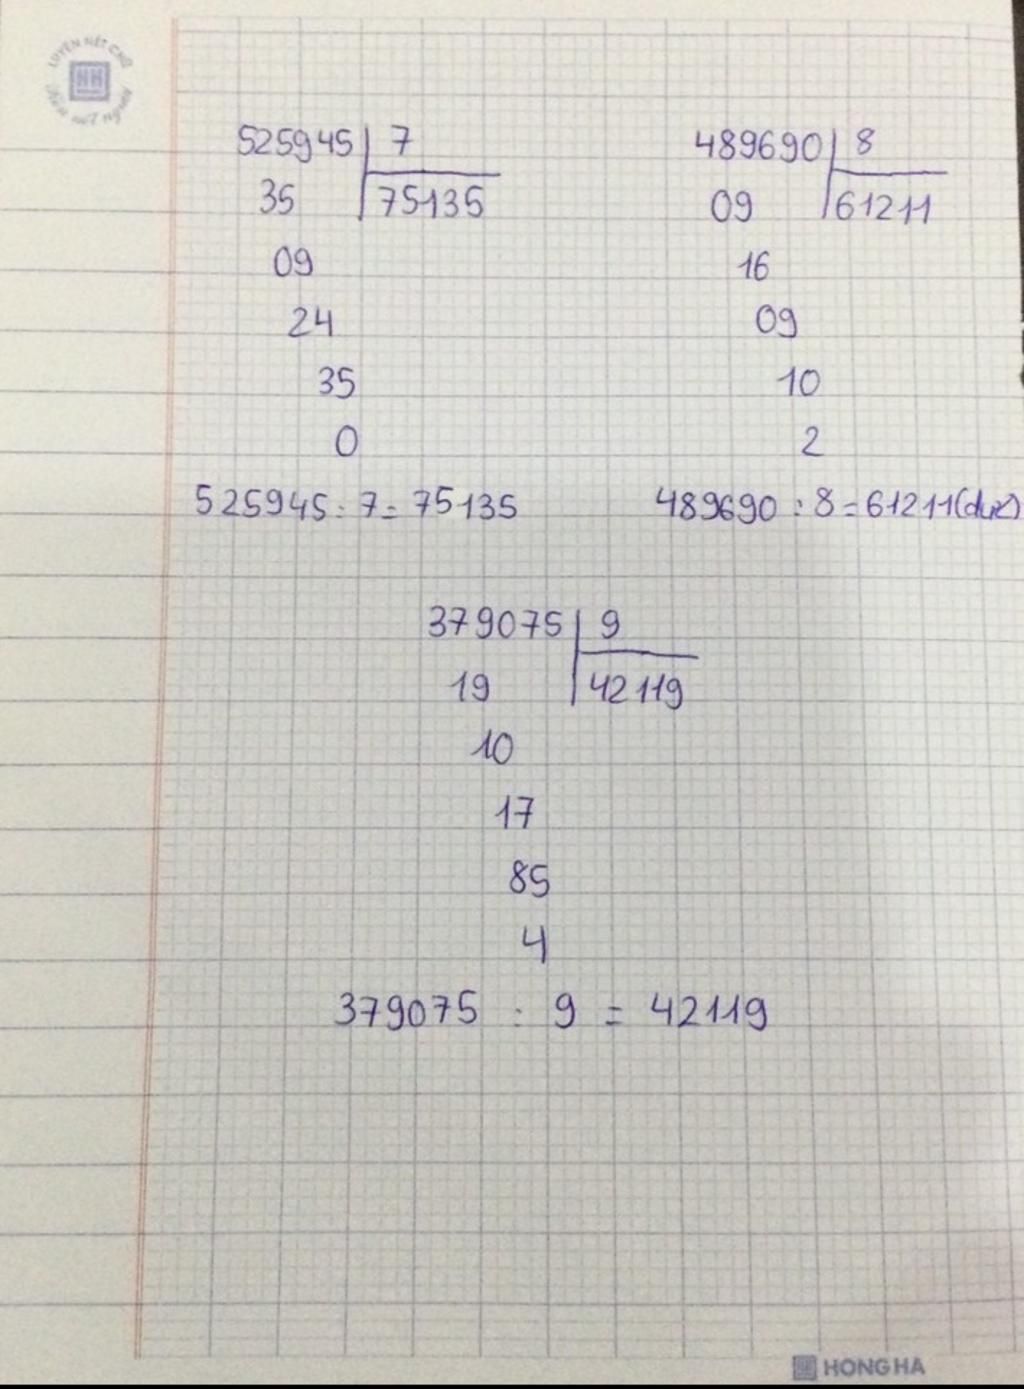 LUYỆN NÉT CHỮ
HH
Rèn nết Người
525945 7
35 75135
09
24
35
0
525945 : 7 = 75135
489690 8
09 61211
16
09
10
2
489690 : 8 = 61211 (dư2)
379075 9
19 42119
10
17
85
4
379075 : 9 = 42119
HONG HA